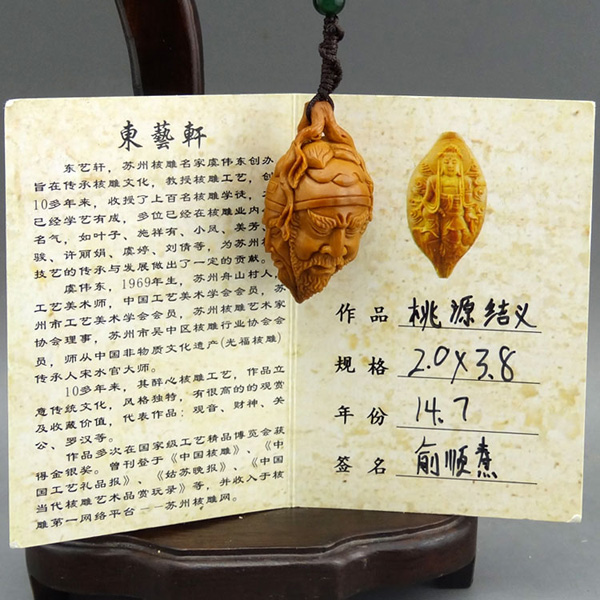 東藝軒
东艺轩,苏州核雕名家虞伟东创办,
旨在传承核雕文化,教授核雕工艺,创
10多年来,收授了上百名核雕学徒,
已经学艺有成,多位已经在核雕业内
名气,如叶子、施祥有、小凤、美芳、
骏、许丽娟、虞婷、刘倩等,为苏州核
技艺的传承与发展做出了一定的贡献。
虞伟东,1969年生,苏州舟山村人,
工艺美术师,中国工艺美术学会会员,苏
州市工艺美术学会会员,苏州核雕艺术家
协会理事,苏州市吴中区核雕行业协会会
员,师从中国非物质文化遗产(光福核雕)
传承人宋水官大师。
10多年来,其醉心核雕工艺,作品立
意传统文化,风格独特,有很高的的观赏
及收藏价值,代表作品:观音、财神、关
公、罗汉等。
作品多次在国家级工艺精品博览会获
得金银奖。曾刊登于《中国核雕》、《中
国工艺礼品报》、《姑苏晚报》、《中国
当代核雕艺术品赏玩录》等,并收入于核
雕第一网络平台——苏州核雕网。
作品 桃源结义
规格 2.0X3.8
年份 14.7
签名 俞顺熹